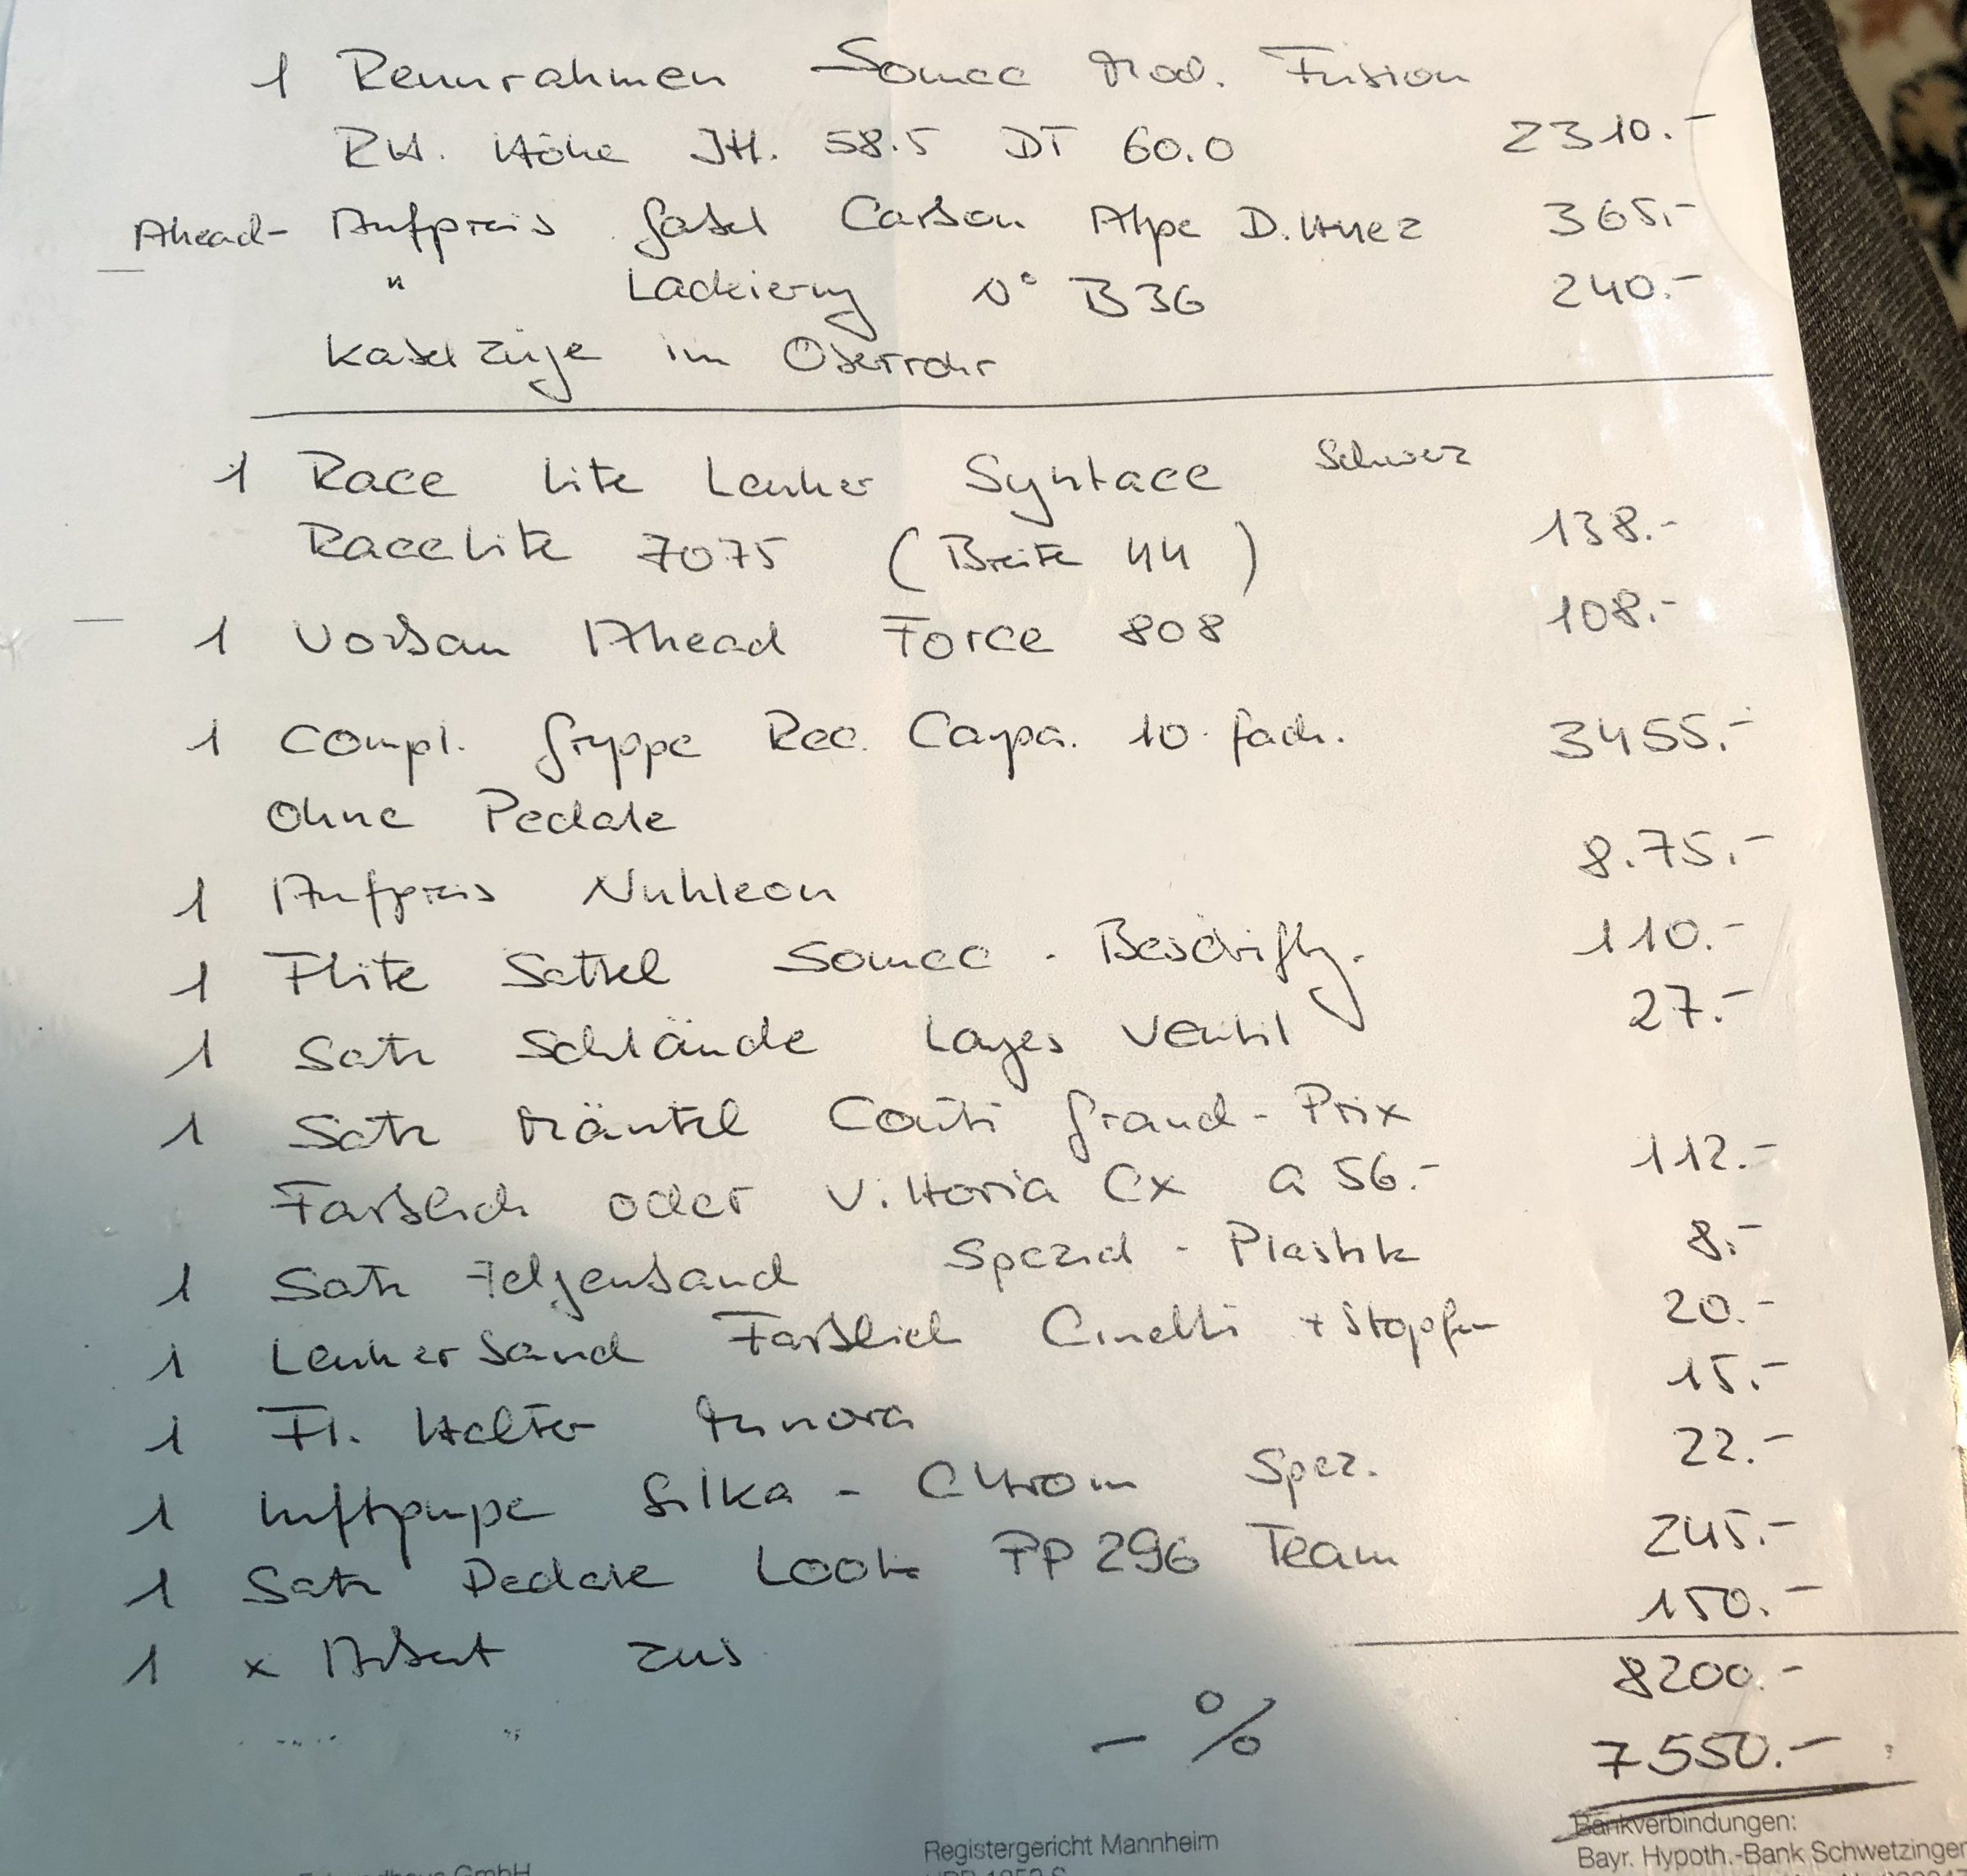 1 Rennrahmen Somec Mod. Fusion
RH. Höhe JH. 58.5 DT 60.0 2310.-
Ahead- Aufpreis Gabel Carbon Alpe D.Huez 365.-
" Lackierung N° B36 240.-
Kabelzüge im Oberrohr
1 Race Lite Lenker Syntace Schwarz
Racelite 7075 (Breite 44) 138.-
1 Vorbau Ahead Force 808 108.-
1 Compl. Gruppe Rec. Campa. 10.fach. 3455.-
Ohne Pedale
1 Aufpreis Nuhleon 8.75.-
1 Flite Sattel Somec. Beschriftg. 110.-
1 Satz Schläuche Langes Ventil 27.-
1 Satz Mäntel Conti Grand-Prix
Farblich oder Vittoria Cx a 56.- 112.-
1 Satz Felgenband Spezial - Plastik 8.-
1 Lenkerband Farblich Cinelli + Stopfen 20.-
1 Fl. Halter 15.-
1 Luftpumpe Silka - Chrom Spez. 22.-
1 Satz Pedale Look PP 296 Team 245.-
1 x Arbeit zus 150.-
8200.-
- % 7550.-
Registergericht Mannheim
Bankverbindungen:
Bayr. Hypoth.-Bank Schwetzingen